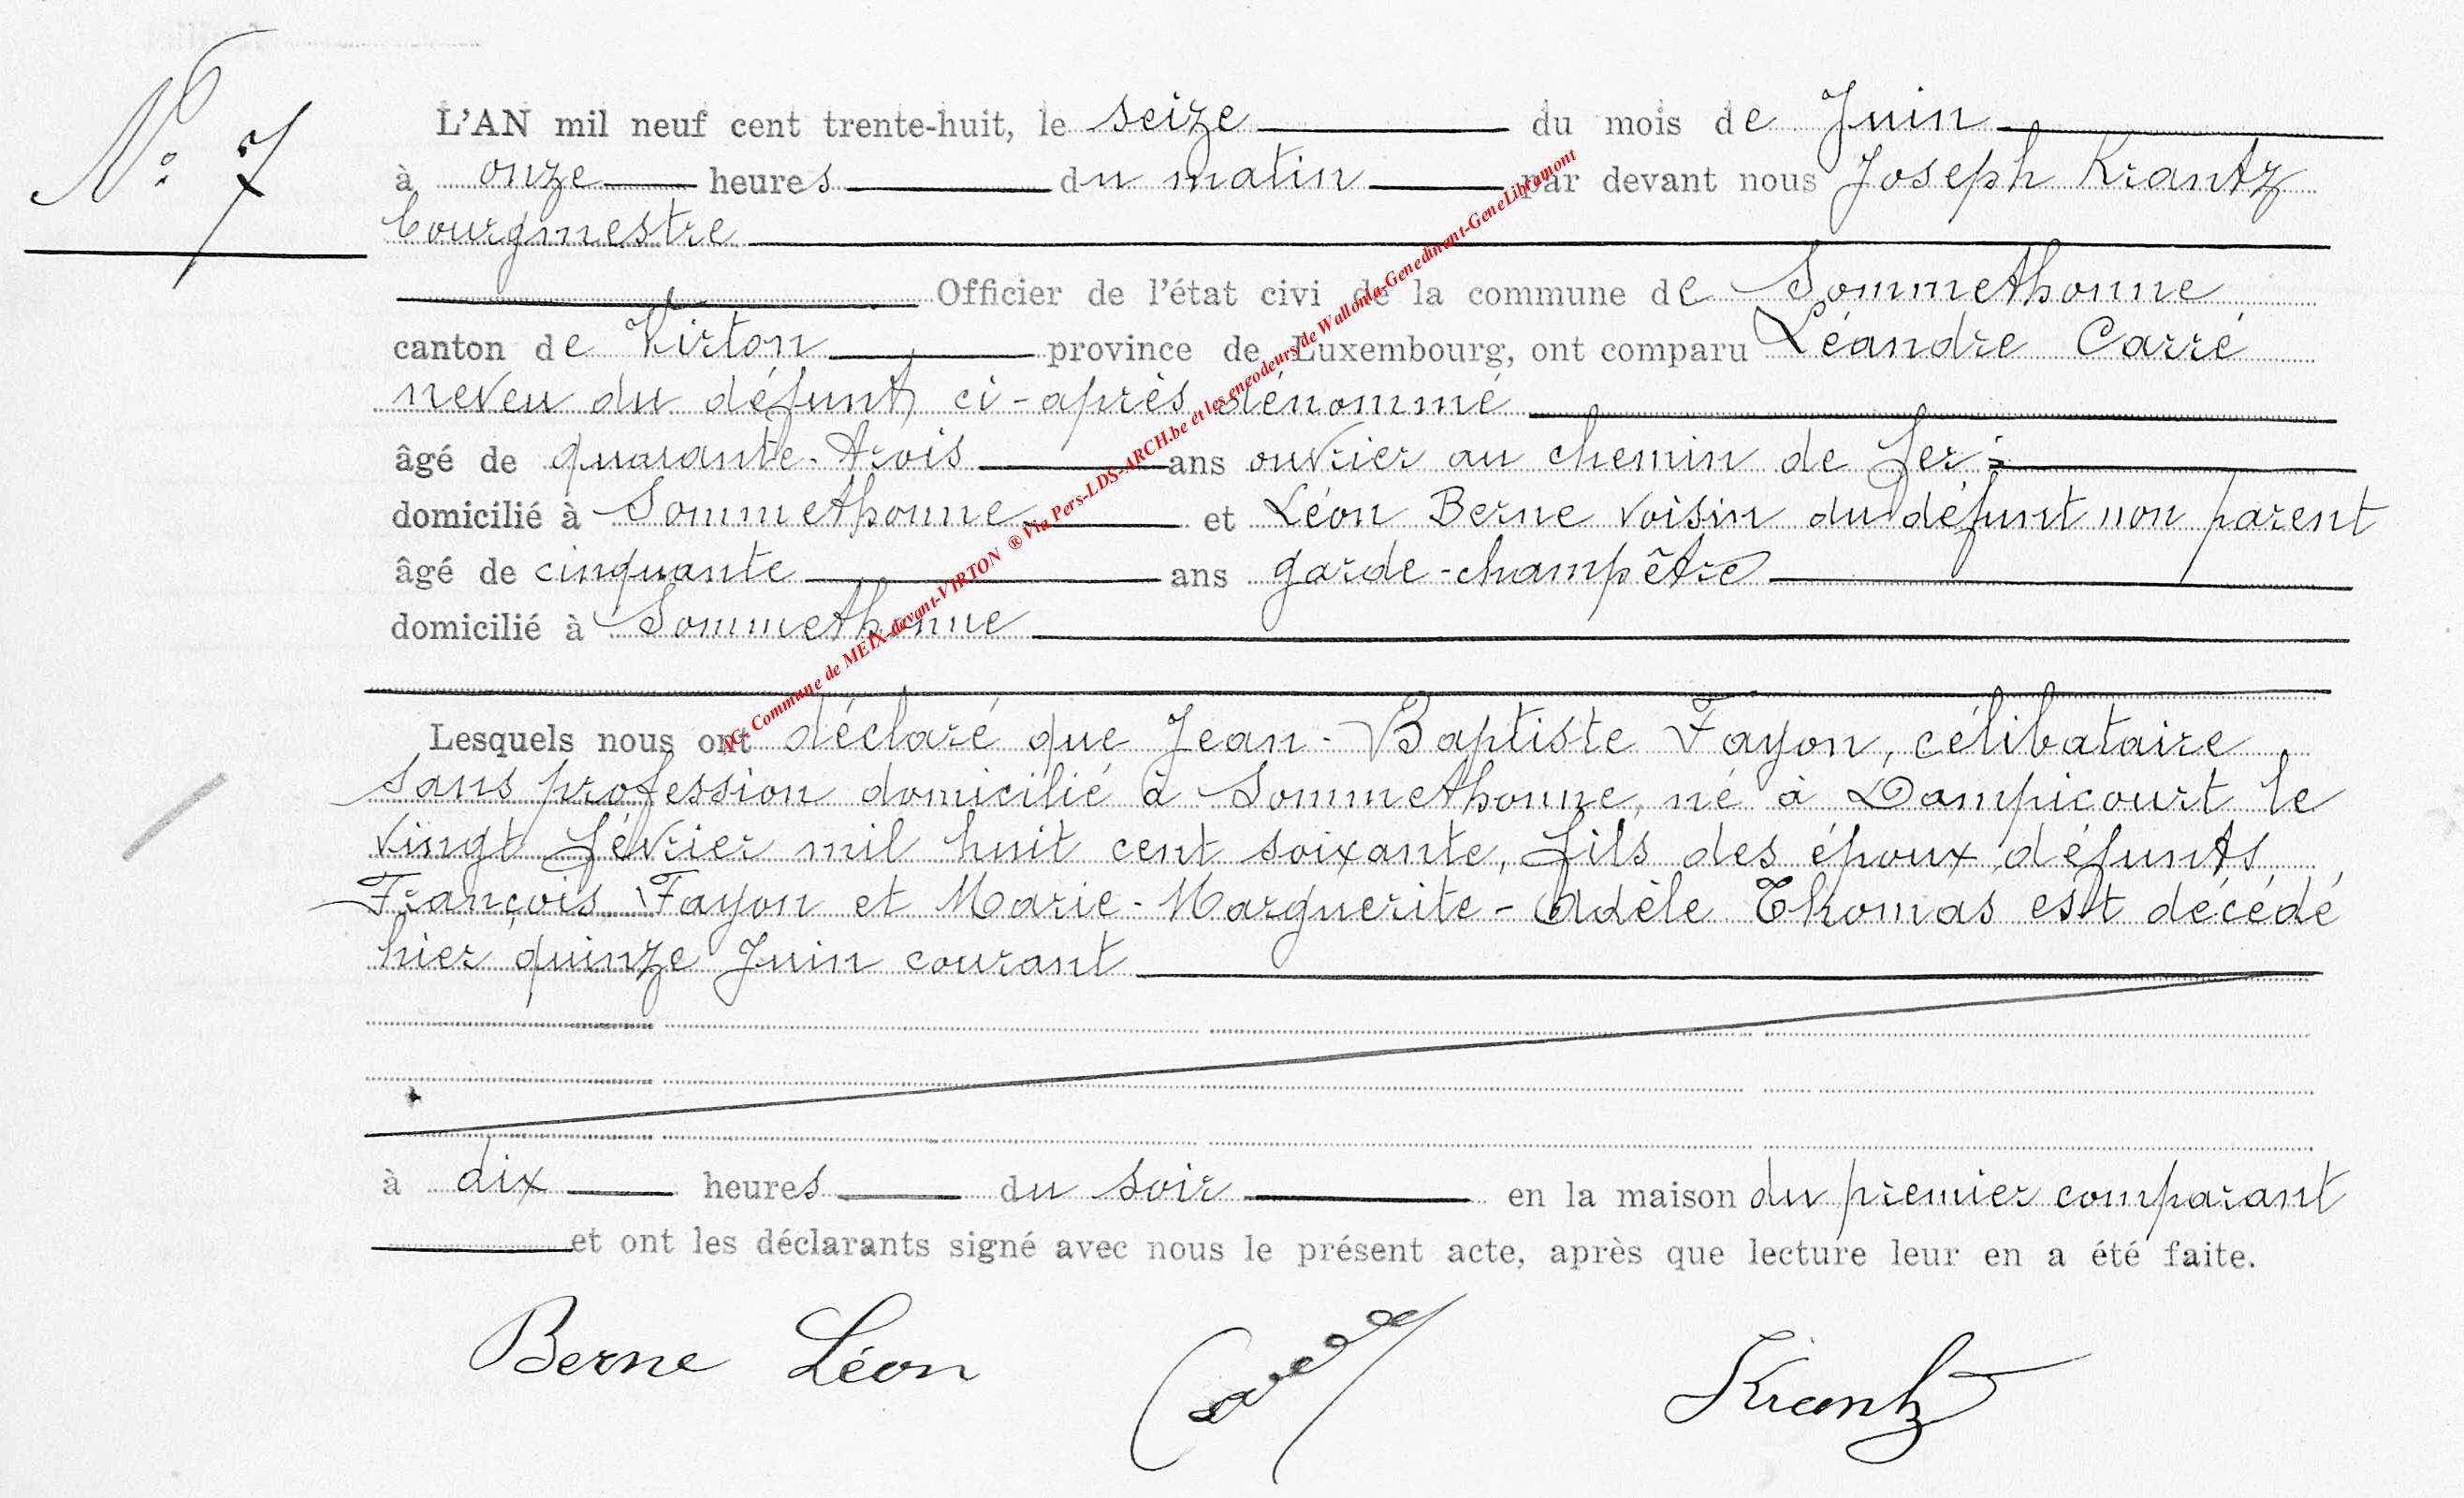 N° 7
L'AN mil neuf cent trente-huit, le seize du mois de Juin
à onze heures du matin par devant nous Joseph Krantz
bourgmestre
Officier de l'état civi de la commune de Sommethonne
canton de Virton province de Luxembourg, ont comparu Léandre Carré
neveu du défunt, ci-après dénommé
âgé de quarante-trois ans ouvrier au chemin de fer;
domicilié à Sommethonne et Léon Berne voisin du défunt non parent
âgé de cinquante ans garde-champêtre
domicilié à Sommethonne
Lesquels nous ont déclaré que Jean-Baptiste Fayon, célibataire
sans profession domicilié à Sommethonne, né à Dampicourt le
vingt février mil huit cent soixante, fils des époux défunts,
François Fayon et Marie-Marguerite-Adèle Thomas est décédé
hier quinze Juin courant
à dix heures du soir en la maison du premier comparant
et ont les déclarants signé avec nous le présent acte, après que lecture leur en a été faite.
Berne Léon Krantz
AC. Commune de MEIX-devant-VIRTON ® Via Pers-LDS-ARCH.be et les encodeurs de Wallonia-Genedinant-GeneLibramont